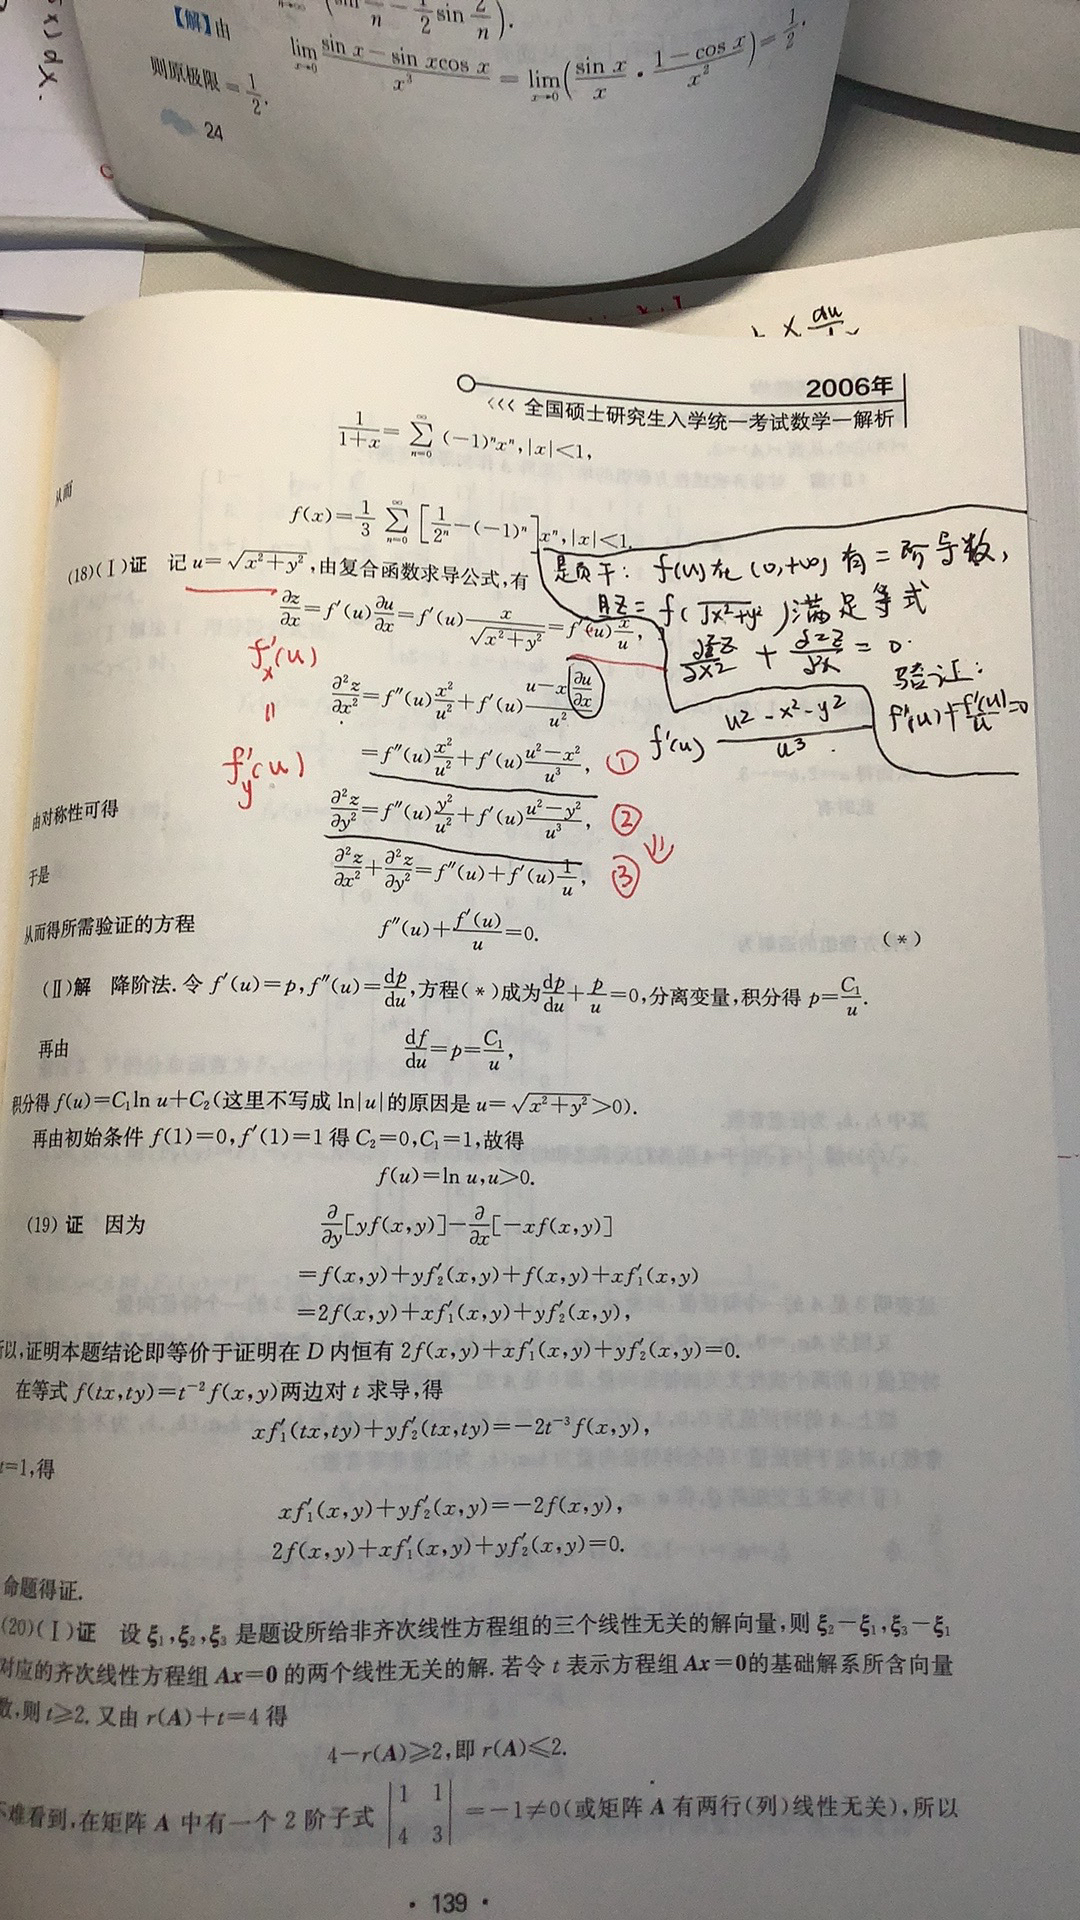 x) dx.
【解】由
lim x→0 (sin x − sin x cos x)/x³ = lim x→0 (sin x/x · (1−cos x)/x²) = 1/2,
则原极限 = 1/2,
24
× du
2006年
<<< 全国硕士研究生入学统一考试数学一解析
1/(1+x) = ∑_{n=0}^{∞} (−1)ⁿxⁿ, |x|<1,
从而
f(x) = 1/3 ∑_{n=0}^{∞} [1/2ⁿ − (−1)ⁿ] xⁿ, |x|<1.
(18)(Ⅰ)证 记 u=√(x²+y²), 由复合函数求导公式, 有
是题干: f(u)在(0,+∞)有二阶导数,
且Z = f(√(x²+y²))满足等式
∂²z/∂x² + ∂²z/∂²x = 0.
验证:
f''(u) + f'(u)/u = 0
∂z/∂x = f′(u) ∂u/∂x = f′(u) x/√(x²+y²) = f′(u) x/u,
f'x(u)
=
f'y(u)
∂²z/∂x² = f″(u) x²/u² + f′(u) (u−x ∂u/∂x)/u²
= f″(u) x²/u² + f′(u) (u²−x²)/u³, ①
f'(u) (u²−x²−y²)/u³.
由对称性可得
∂²z/∂y² = f″(u) y²/u² + f′(u) (u²−y²)/u³, ②
⇓
于是
∂²z/∂x² + ∂²z/∂y² = f″(u) + f′(u) 1/u, ③
从而得所需验证的方程
f″(u) + f′(u)/u = 0. (*)
(Ⅱ)解 降阶法. 令 f′(u)=p, f″(u)=dp/du, 方程(*)成为 dp/du + p/u = 0, 分离变量, 积分得 p=C₁/u.
再由
df/du = p = C₁/u,
积分得 f(u)=C₁ln u+C₂(这里不写成 ln|u|的原因是 u=√(x²+y²)>0).
再由初始条件 f(1)=0, f′(1)=1 得 C₂=0, C₁=1, 故得
f(u)=ln u, u>0.
(19)证 因为
∂/∂y[yf(x,y)] − ∂/∂x[−xf(x,y)]
=f(x,y)+yf′₂(x,y)+f(x,y)+xf′₁(x,y)
=2f(x,y)+xf′₁(x,y)+yf′₂(x,y),
以,证明本题结论即等价于证明在 D 内恒有 2f(x,y)+xf′₁(x,y)+yf′₂(x,y)=0.
在等式 f(tx,ty)=t⁻²f(x,y)两边对 t 求导, 得
xf′₁(tx,ty)+yf′₂(tx,ty)=−2t⁻³f(x,y),
t=1, 得
xf′₁(x,y)+yf′₂(x,y)=−2f(x,y),
2f(x,y)+xf′₁(x,y)+yf′₂(x,y)=0.
命题得证.
(20)(Ⅰ)证 设 ξ₁,ξ₂,ξ₃ 是题设所给非齐次线性方程组的三个线性无关的解向量, 则 ξ₂−ξ₁,ξ₃−ξ₁
对应的齐次线性方程组 Ax=0 的两个线性无关的解. 若令 t 表示方程组 Ax=0的基础解系所含向量
数, 则 t≥2. 又由 r(A)+t=4 得
4−r(A)≥2, 即 r(A)≤2.
不难看到, 在矩阵 A 中有一个 2 阶子式 |1 1; 4 3| =−1≠0(或矩阵 A 有两行(列)线性无关), 所以
· 139 ·